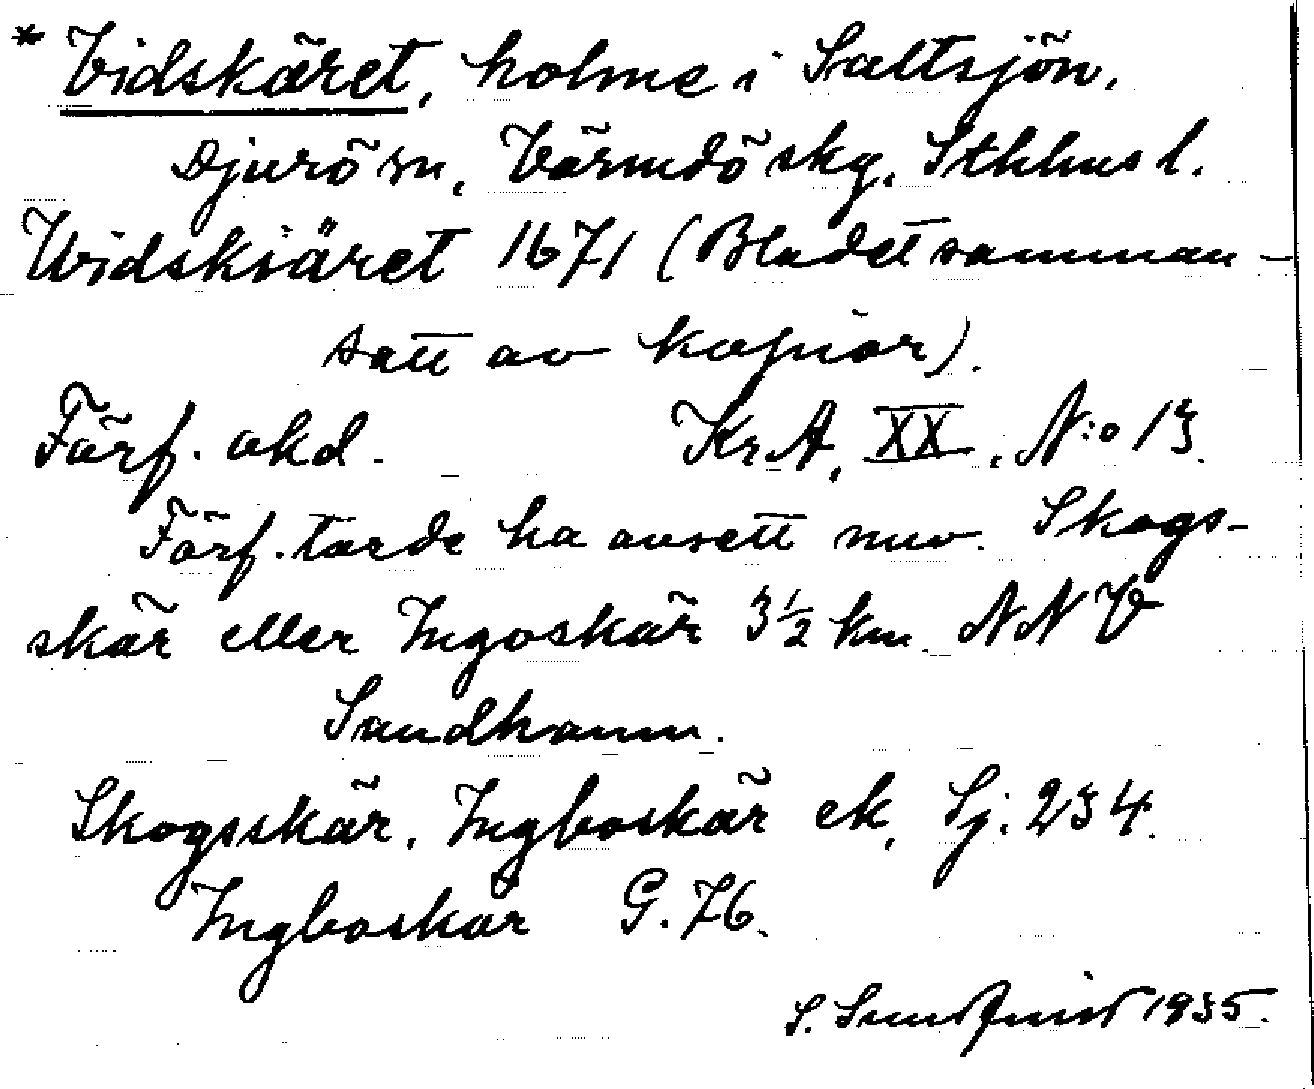 * Vidskäret, holme i Saltsjön,
Djurö sn, Värmdö skg, Sthlms l.
Widskiäret 1671 (Bladet samman-
satt av kopior).
Förf. okd. KrA, XX, N:o 13.
Förf. torde ha avsett nuv. Skogs-
skär eller Ingoskär 3½ km NNV
Sandhamn.
Skogsskär, Ingboskär ek, Sj. 234.
Ingboskär G. 76.
S. Sundquist 1935.